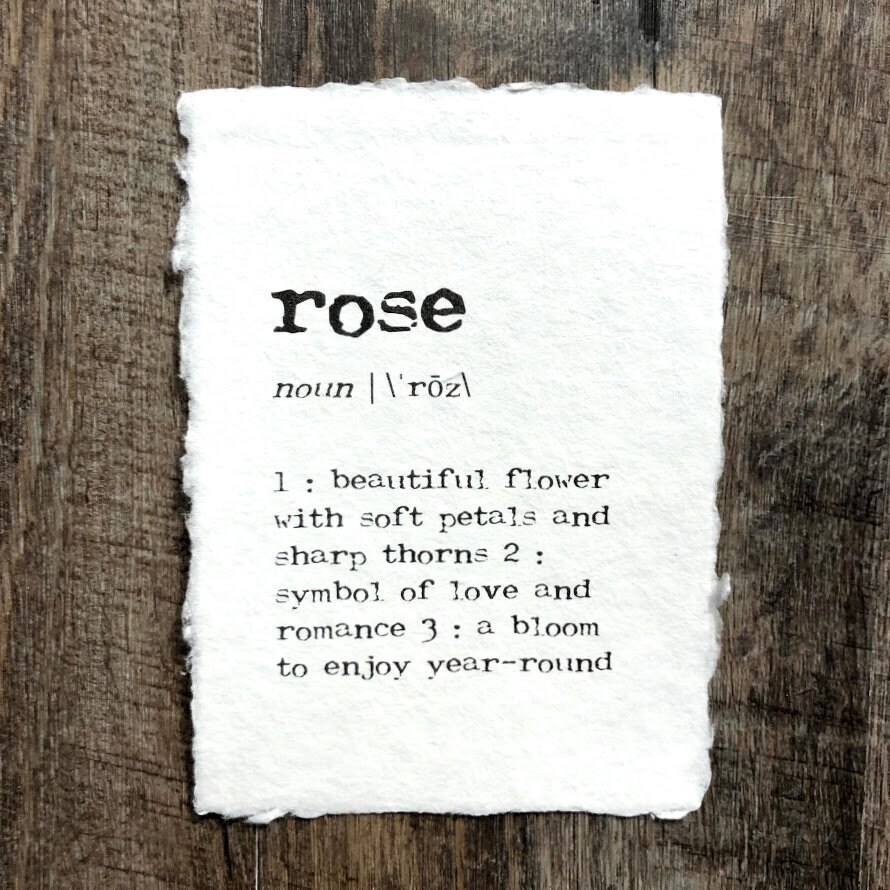 rose
noun | \ˈrōz\
1 : beautiful flower
with soft petals and
sharp thorns 2 :
symbol of love and
romance 3 : a bloom
to enjoy year-round